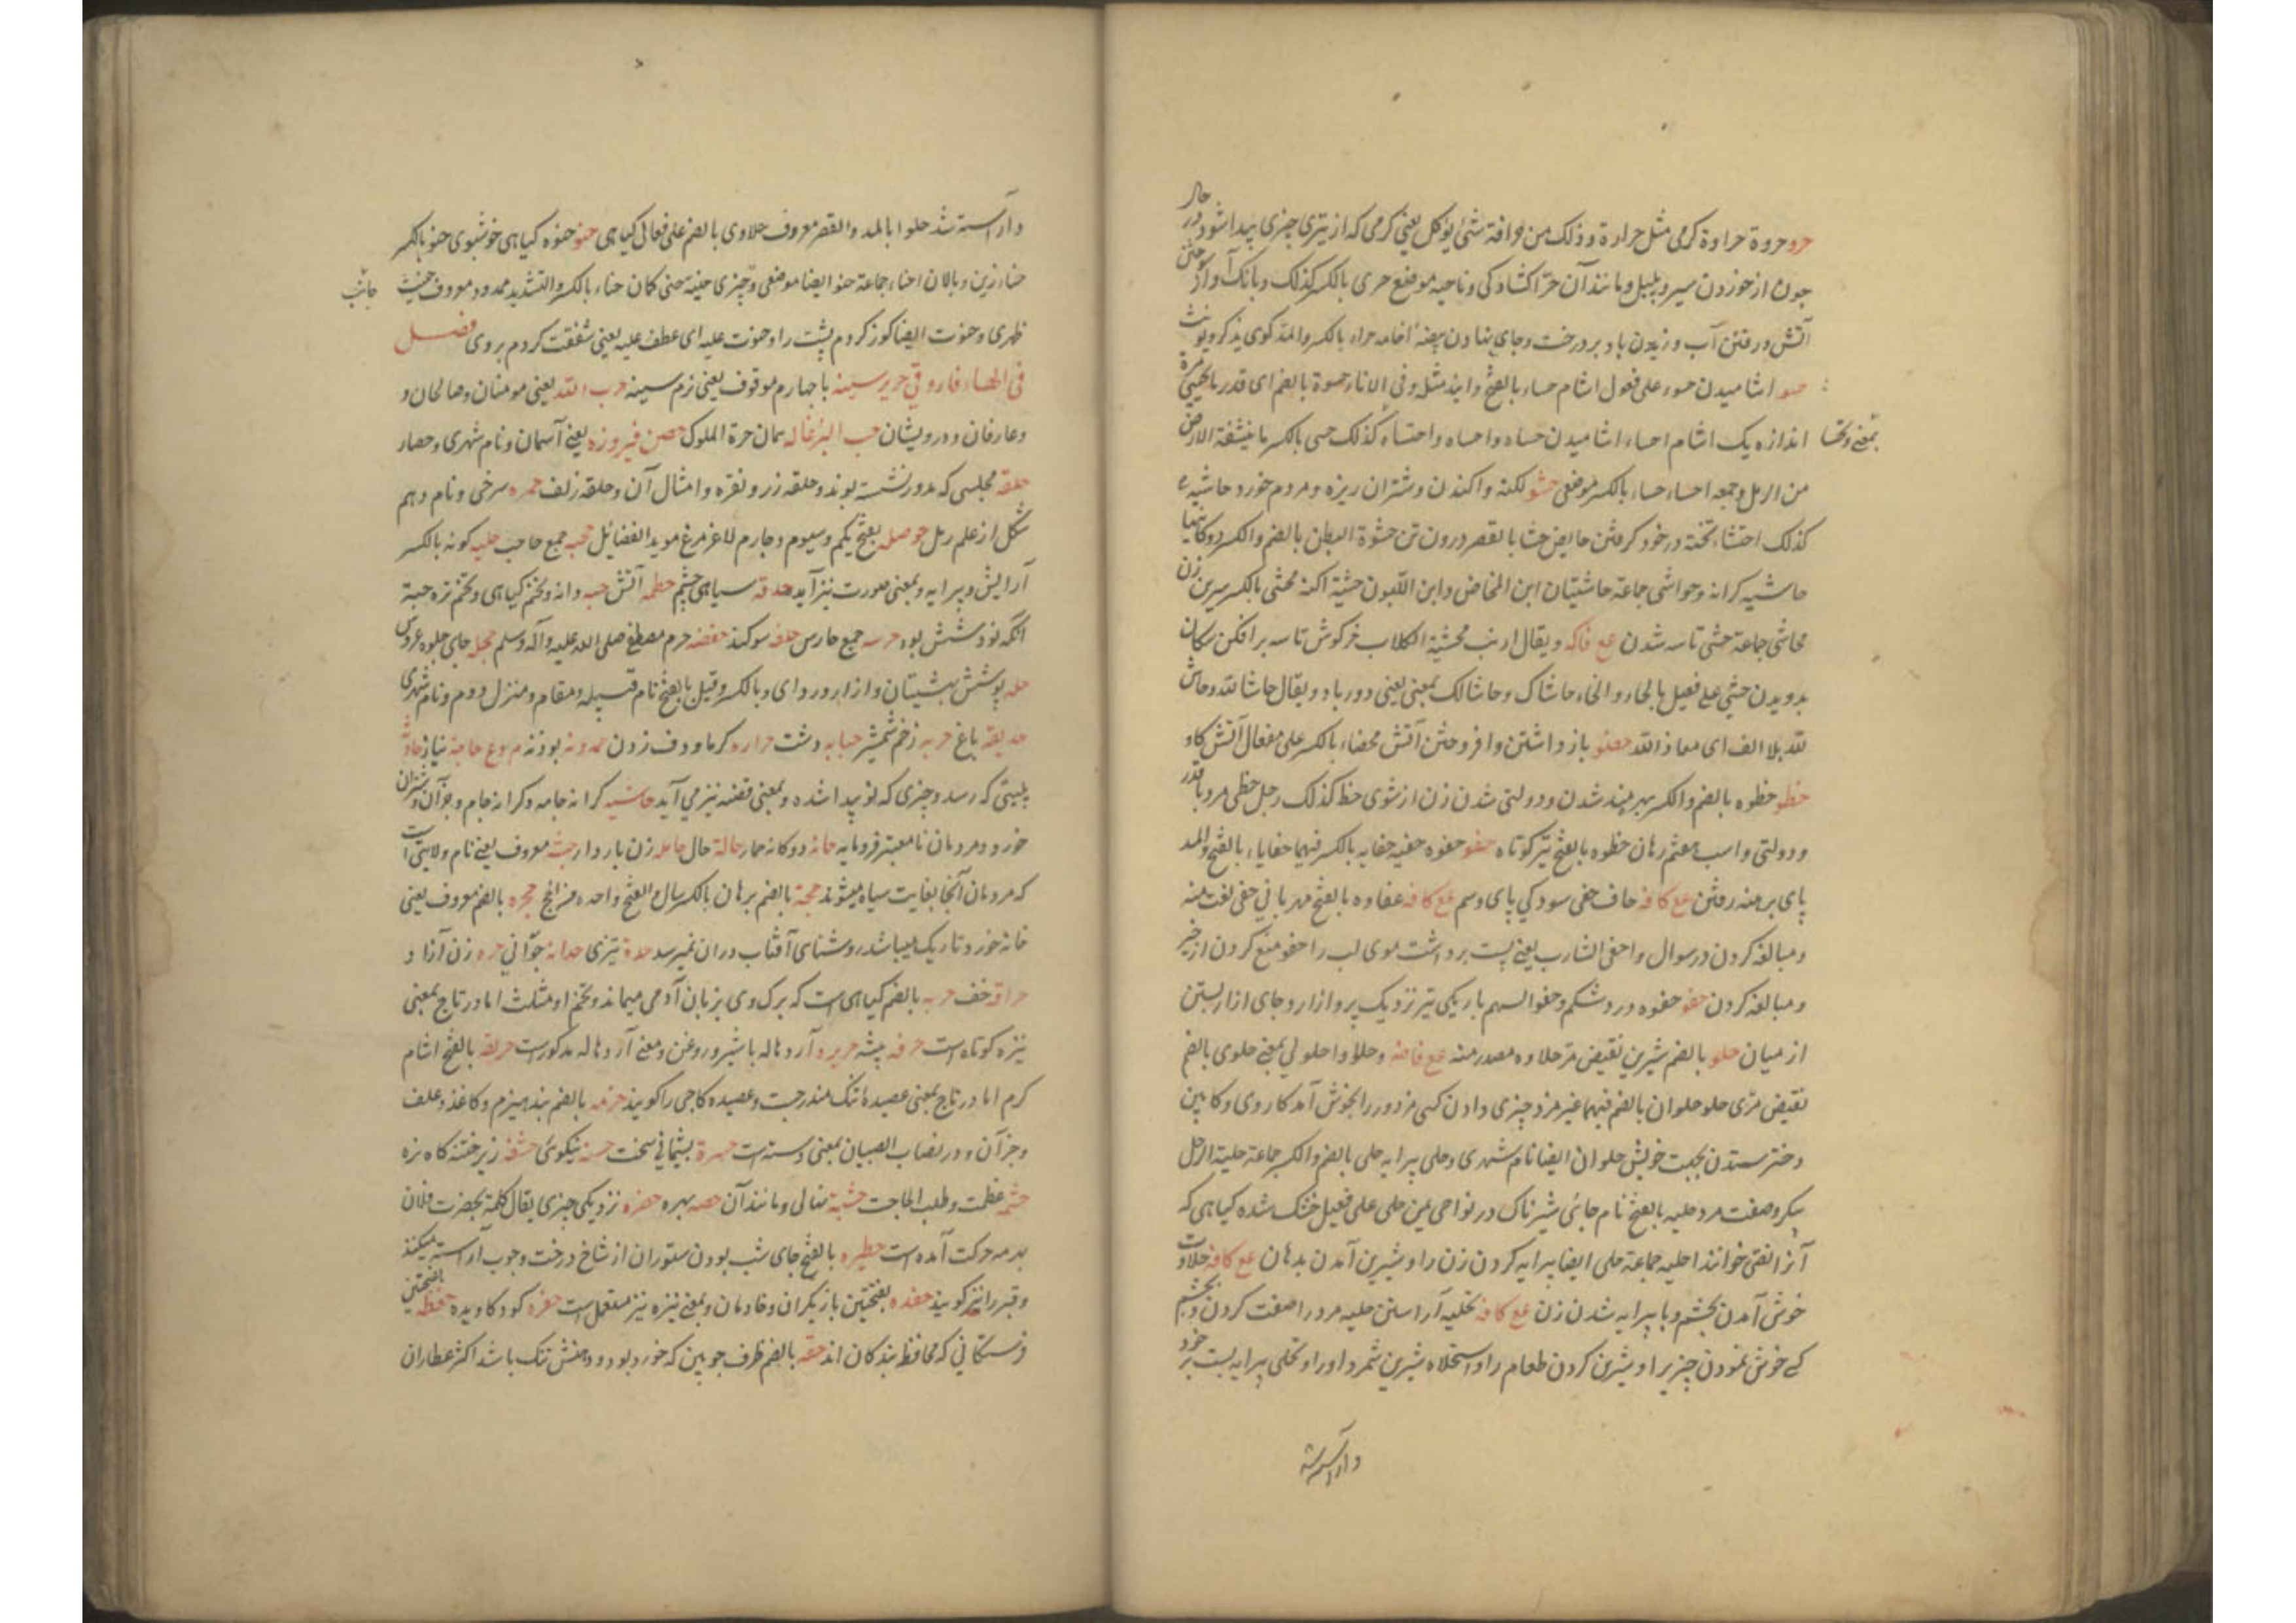 حرو حروة حراوة گرمی مثل حرارة وذلک من حرافة شئ یؤکل یعنی گرمی که از تیزی چیزی پیدا شود در حال
چون از خوردن سیر و پلپل و مانند آن حرا کشادکی و ناحیه موضع حری بالکسر کذلک و بانک آواز سوختن
آتش و رفتن آب و وزیدن باد بر درخت و جای نهادن بیضه حراء بالکسر والمد کوی یذکر ویؤنث
حسو اشامیدن حسوء علی فعول اشام حساء بالفتح وایضا مثله وفی الاناء حسوة بالضم ای قدر ما یحسی مرة
اندازه یک اشام احساء اشامیدن حساه واحساه واحتساء کذلک حسی بالکسر ما ینشفه الارض
من الرمل وجمعه احساء حساء بالکسر موضعی حشو اکنه واکندن و شتران ریزه و مردم خورد حاشیه
کذلک احتشاء پخته در خود کرفتن حایض حشا بالقصر درون تن حشوة البطن بالضم والکسر رودکانیها
حاشیه کرانه و حواشی جماعة حاشیتان ابن المخاض وابن اللبون حشیة اکنه محشی بالکسر سرین زن
محاشی جماعة حشی تاسه شدن مع فاکه ویقال ارنب محشیة الکلاب خرگوش تاسه برافکن سکان
بدویدن حشی علی فعیل بالحاء والخاء حاشاک وحاشا لک بمعنی یعنی دور باد ویقال حاشا لله وحاش
لله بلا الف ای معاذ الله حضو باز داشتن وافروختن آتش محضاء بالکسر علی مفعال آتش کاو
حظو حظوه بالضم والکسر بهره‌مند شدن و دولتی شدن زن از شوی حظ کذلک رجل حظی مرد باقدر
و دولتی واسب حظوه بالفتح تیر کوتاه حفو حفوه حفیه حفایه بالکسر فیهما حفایاء بالفتح والمد
پای برهنه رفتن مع کافه حاف حفی سودکی پای وسم مع کافه حفاوه بالفتح مهربانی حفی لغت منه
و مبالغه کردن در سوال واحفی الشارب یعنی پست برداشت موی لب را حفو منع کردن از خیر
و مبالغه کردن حقو حقوه درد شکم وحقو السهم باریکی تیر نزدیک پر وازار وجای ازار بستن
از میان حلو بالضم شیرین نقیض مر حلاوه مصدر منه مع فامه وحلو واحلولی بمعنی حلوی بالضم
نقیض مری حلو حلوان بالضم فیهما غیر مزد چیزی دادن کسی مزدور را بخوش آمد کار وی وکابین
دختر ستدن بجهت خویش حلوان ایضا نام شهری وحلی پیرایه حلی بالضم والکسر جماعة حلیة الرجل
پیکر وصفت مرد حلیه بالفتح نام جائی شیرناک در نواحی یمن حلی علی فعیل خشک شده کیاهی که
آنرا نصی خوانند احلیه جماعة حلی ایضا پیرایه کردن زن را وشیرین آمدن بدهان مع کافه حلاوت
خوش آمدن بچشم وبا پیرایه شدن زن مع کافه تحلیه آراستن حلیه مرد را صفت کردن وبچشم
کسی خوش نمودن چیزی را وشیرین کردن طعام را واستحلاه شیرین شمرد او را وتحلی پیرایه بست بر خود
وآراسته
بمعنی وتحسا
وآراسته شد حلوا بالمد والقصر معروف حلاوی بالضم علی فعالی کیاهی حنو حنوه کیاهی خوشبوی حنو بالکسر
حناء زین وپالان احناء جماعة حنو ایضا موضعی وچیزی حنیه حنی کمان حناء بالکسر والتشدید ممدود معروف حنیت
جانب
ظهری وحنوت ایضا کوز کردم پشت را وحنوت علیه ای عطف علیه یعنی شفقت کردم بروی فصل
فی الهاء فاروقی حریر سینه با چهارم موقوف یعنی نرم سینه حزب الله یعنی مومنان وصالحان و
وعارفان ودرویشان حب البرغاله همان حرة الملوک حصن فیروزه یعنی آسمان ونام شهری وحصار
حلقه مجلسی که مدور نشسته بوند وحلقه زر ونقره وامثال آن وحلقه زلف حمره سرخی ونام دهم
شکل از علم رمل حوصله بفتح یکم وسیوم وچهارم لاغر مرغ موید الفضایل حجبه جمع حاجب حلیه کونه بالکسر
آرایش وپیرایه وبمعنی صورت نیز آید حدقه سیاهی چشم حطمه آتش حبه دانه وتخم کیاهی وتخم تره حبة
انکه نود شش بود حرسه جمع حارس حلفه سوکند حفصه حرم مصطفی صلی الله علیه وآله وسلم حجله جای جلوه عروس
حله پوشش بهشتیان وازار وردای وبالکسر وقیل بالفتح نام قبیله ومقام ومنزل دوم ونام شهری
حدیقه باغ حربه زخم شمشیر حبابه دشت حراره کرما ودف زدن حمدونه بوزنه حاجه نیاز حادثه
بلیتی که رسد وچیزی که نو پیدا شده وبمعنی قضیه نیز می آید حاشیه کرانه جامه وکرانه جام وجز آن وشتران
خورد ومردمان نامعتبر فرومایه حانه دوکانه خمار حاله حال حامله زن باردار حبشه معروف یعنی نام ولایتی است
که مردمان آنجا بغایت سیاه میشوند حجة بالضم برهان بالکسر سال والفتح واحده من الحج حجره بالضم معروف یعنی
خانه خورد وتاریک میباشد روشنای آفتاب دران نمیرسد حدة تیزی حداثه جوانی حره زن آزاد
حراقه خف حربه بالضم کیاهی است که برک وی بزبان آدمی میماند وتخم او مثلث اما در تاج بمعنی
نیزه کوتاه است حرفه پیشه حریره آرد هاله باشیر وروغن ومعنی آرد هاله مذکورست حریقه بالفتح اشام
کرم اما در تاج بمعنی عصیده تنک مندرجست وعصیده کاجی را کویند حزمه بالضم بند هیزم وکاغذ وعلف
وجز آن ودر نصاب الصبیان بمعنی دسته است حسرة پشیمانی سخت حسنه نیکوئی حشفه زیر ختنه کاه نره
حشمه عظمت وطلب الحاجت حشیة نهالی ومانند آن حصه بهره حضره نزدیکی چیزی یقال کلمة بحضرت فلان
حرکت آمده است حظیره بالفتح جای شب بودن ستوران از شاخ درخت وچوب آراسته میکنند
وقبر را نیز کویند حفده بفتحتین بازیکران وخادمان وبمعنی نیزه نیز مستعمل است حفره کود کاویده حفظه بفتحتین
فرستکانی که محافظ بندکان اند حقه بالضم ظرف چوبین که خورد بود ودهنش تنک باشد اکثر عطاران